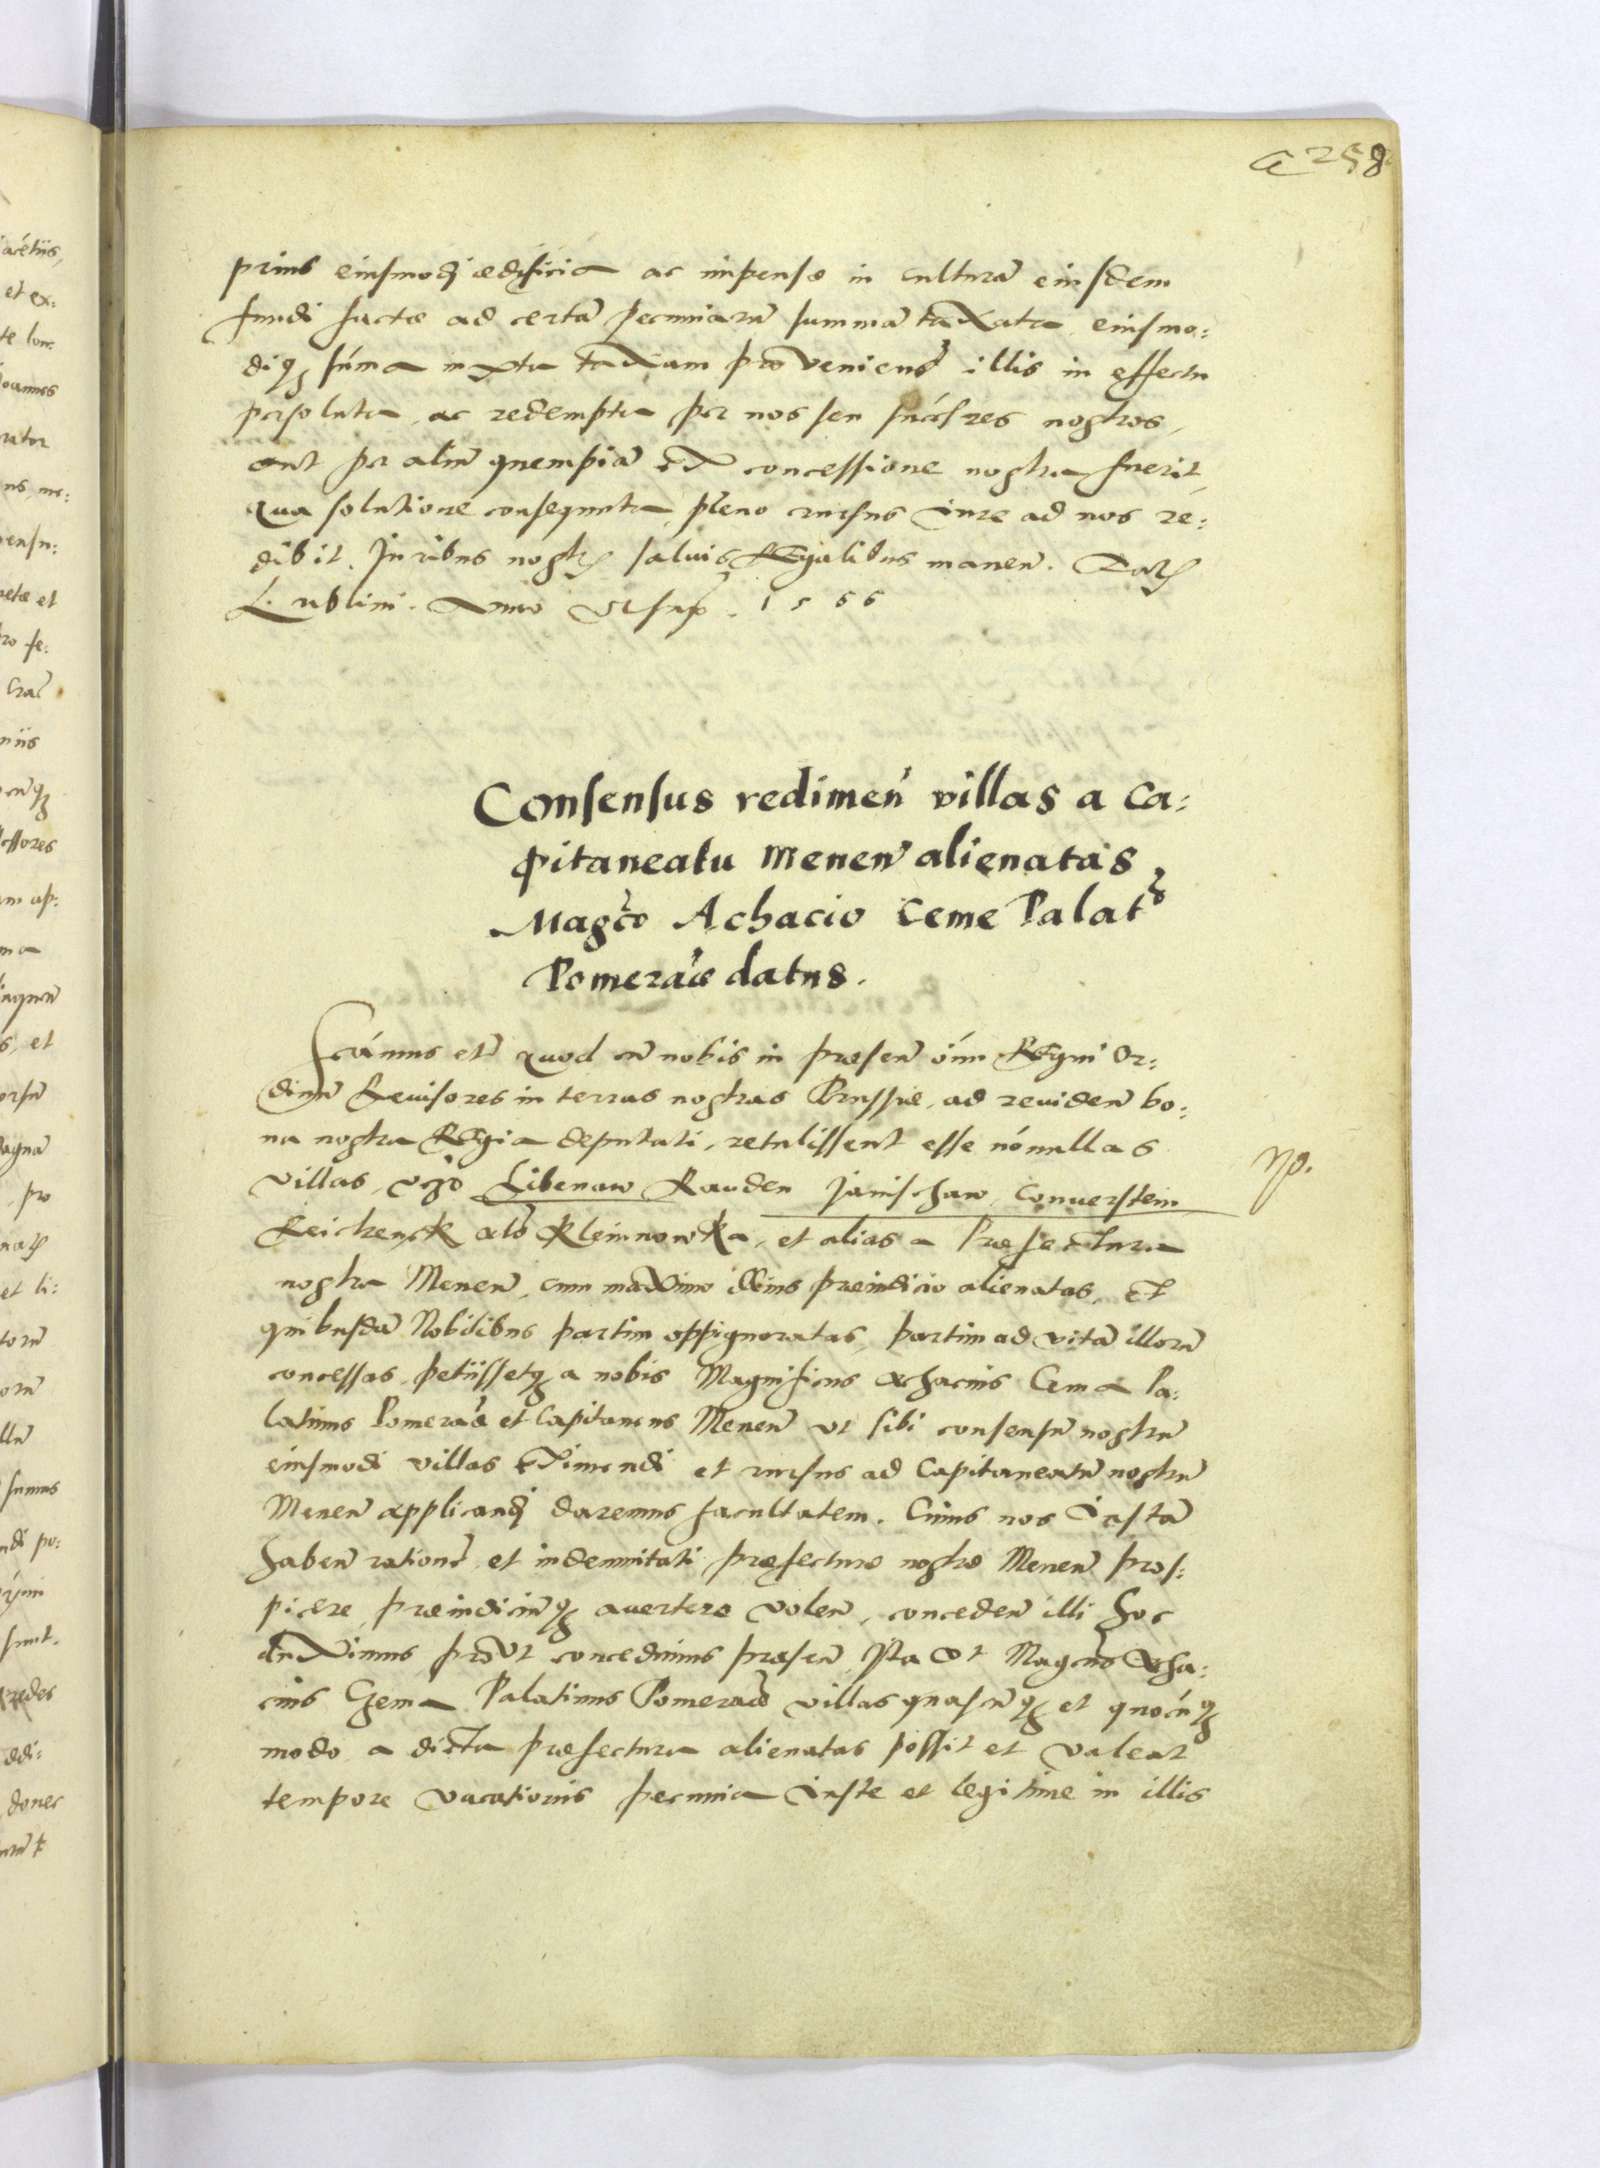 258
prius eiusmodj ædificia ac impensæ in culturã eiusdem
fundi factæ ad certã pecuniarũ summã taxata, eiusmo:
diq₃ súma iuxta taxam proveniens illis in effectu
persoluta, ac redempta per nos seu succes̃res nostros,
aut per aliũ quempiã ex concessione nostra fuerit,
qua solutione consequuta, pleno rursus iure ad nos re:
dibit. Iuribus nostris saluis, Regalibus manen̄. Datũ
Lublini. Anno ut sup̃. 1566
Consensus redimeń villas a Ca:
pitaneatu Menen̄ alienatas
Mag̃co Achacio Ceme Palat̃
Pomerańiæ datus.
Sc̃rimus etc̃ quod cũ nobis in præsen̄ oím Regni Or:
dinũ Reuisores in terras nostras Prussiæ, ad reviden̄ bo:
na nostra Regia deputati, retulissent esse nónullas
villas, vz̃ Libenaw Rauden Janischaw, Conuerstein
Reichenek als̃ Kleinnowka, et alias a Præfectura
nostra Menen̄, cum maximo illius præiudicio alienatas, et
quibusdã Nobilibus partim oppignoratas, partim ad vitã illorũ
concessas, petiissetq₃ a nobis Magnificus Achacius Cema Pa:
latinus Pomerańiæ et Capitaneus Menen̄ vt sibi consensũ nostrũ
eiusmodi villas eximendi et rursus ad Capitaneatũ nostrũ
Menen̄ applicandj daremus facultatem. Cuius nos iustã
haben̄ rationẽ, et indemnitati præfecturæ nostræ Menen̄ pros:
picere, præiudiciũq₃ auertere volen̄, conceden̄ illi hoc
duximus prout concedimus præsen̄, Ita vt Mag̃cus Acha:
cius Czema Palatinus Pomerańiæ villas quascũq₃ et quocũq₃
modo a dicta præfectura alienatas possit et valeat
tempore vacationis pecunia iuste et legitime in illis